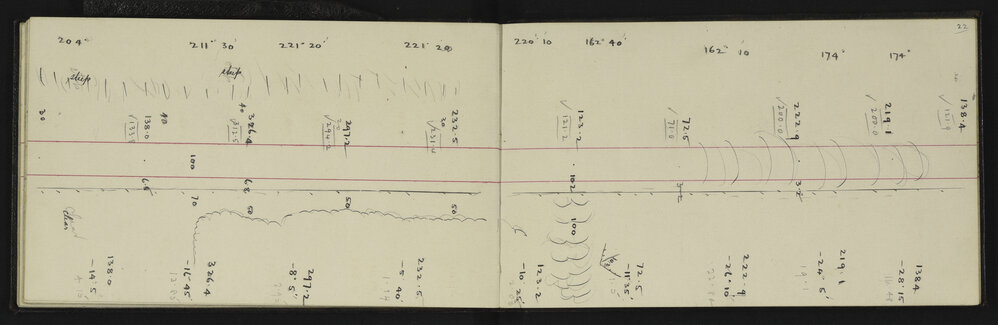 204°
211° 30'
221° 20'
221° 20
220° 10
162° 40'
162° 10
174°
174°
22
steep
steep
30
138.0
133.8
40
40
326.4
312.5
297.2
294.2
30
232.5
231.4
123.2
121.2
72.5
71.0
222.9
200.0
219.1
200.0
138.4
121.9
100
6.5
6.2
102
3.2
3.2
70
50
50
50
100
clear
138.0
-14° 5'
326.4
-16° 45'
297.2
-8° 5'
232.5
-5° 40'
123.2
-10° 25'
72.5
-11° 35'
222.9
-26° 10'
219.1
-24° 5'
138.4
-28° 15'